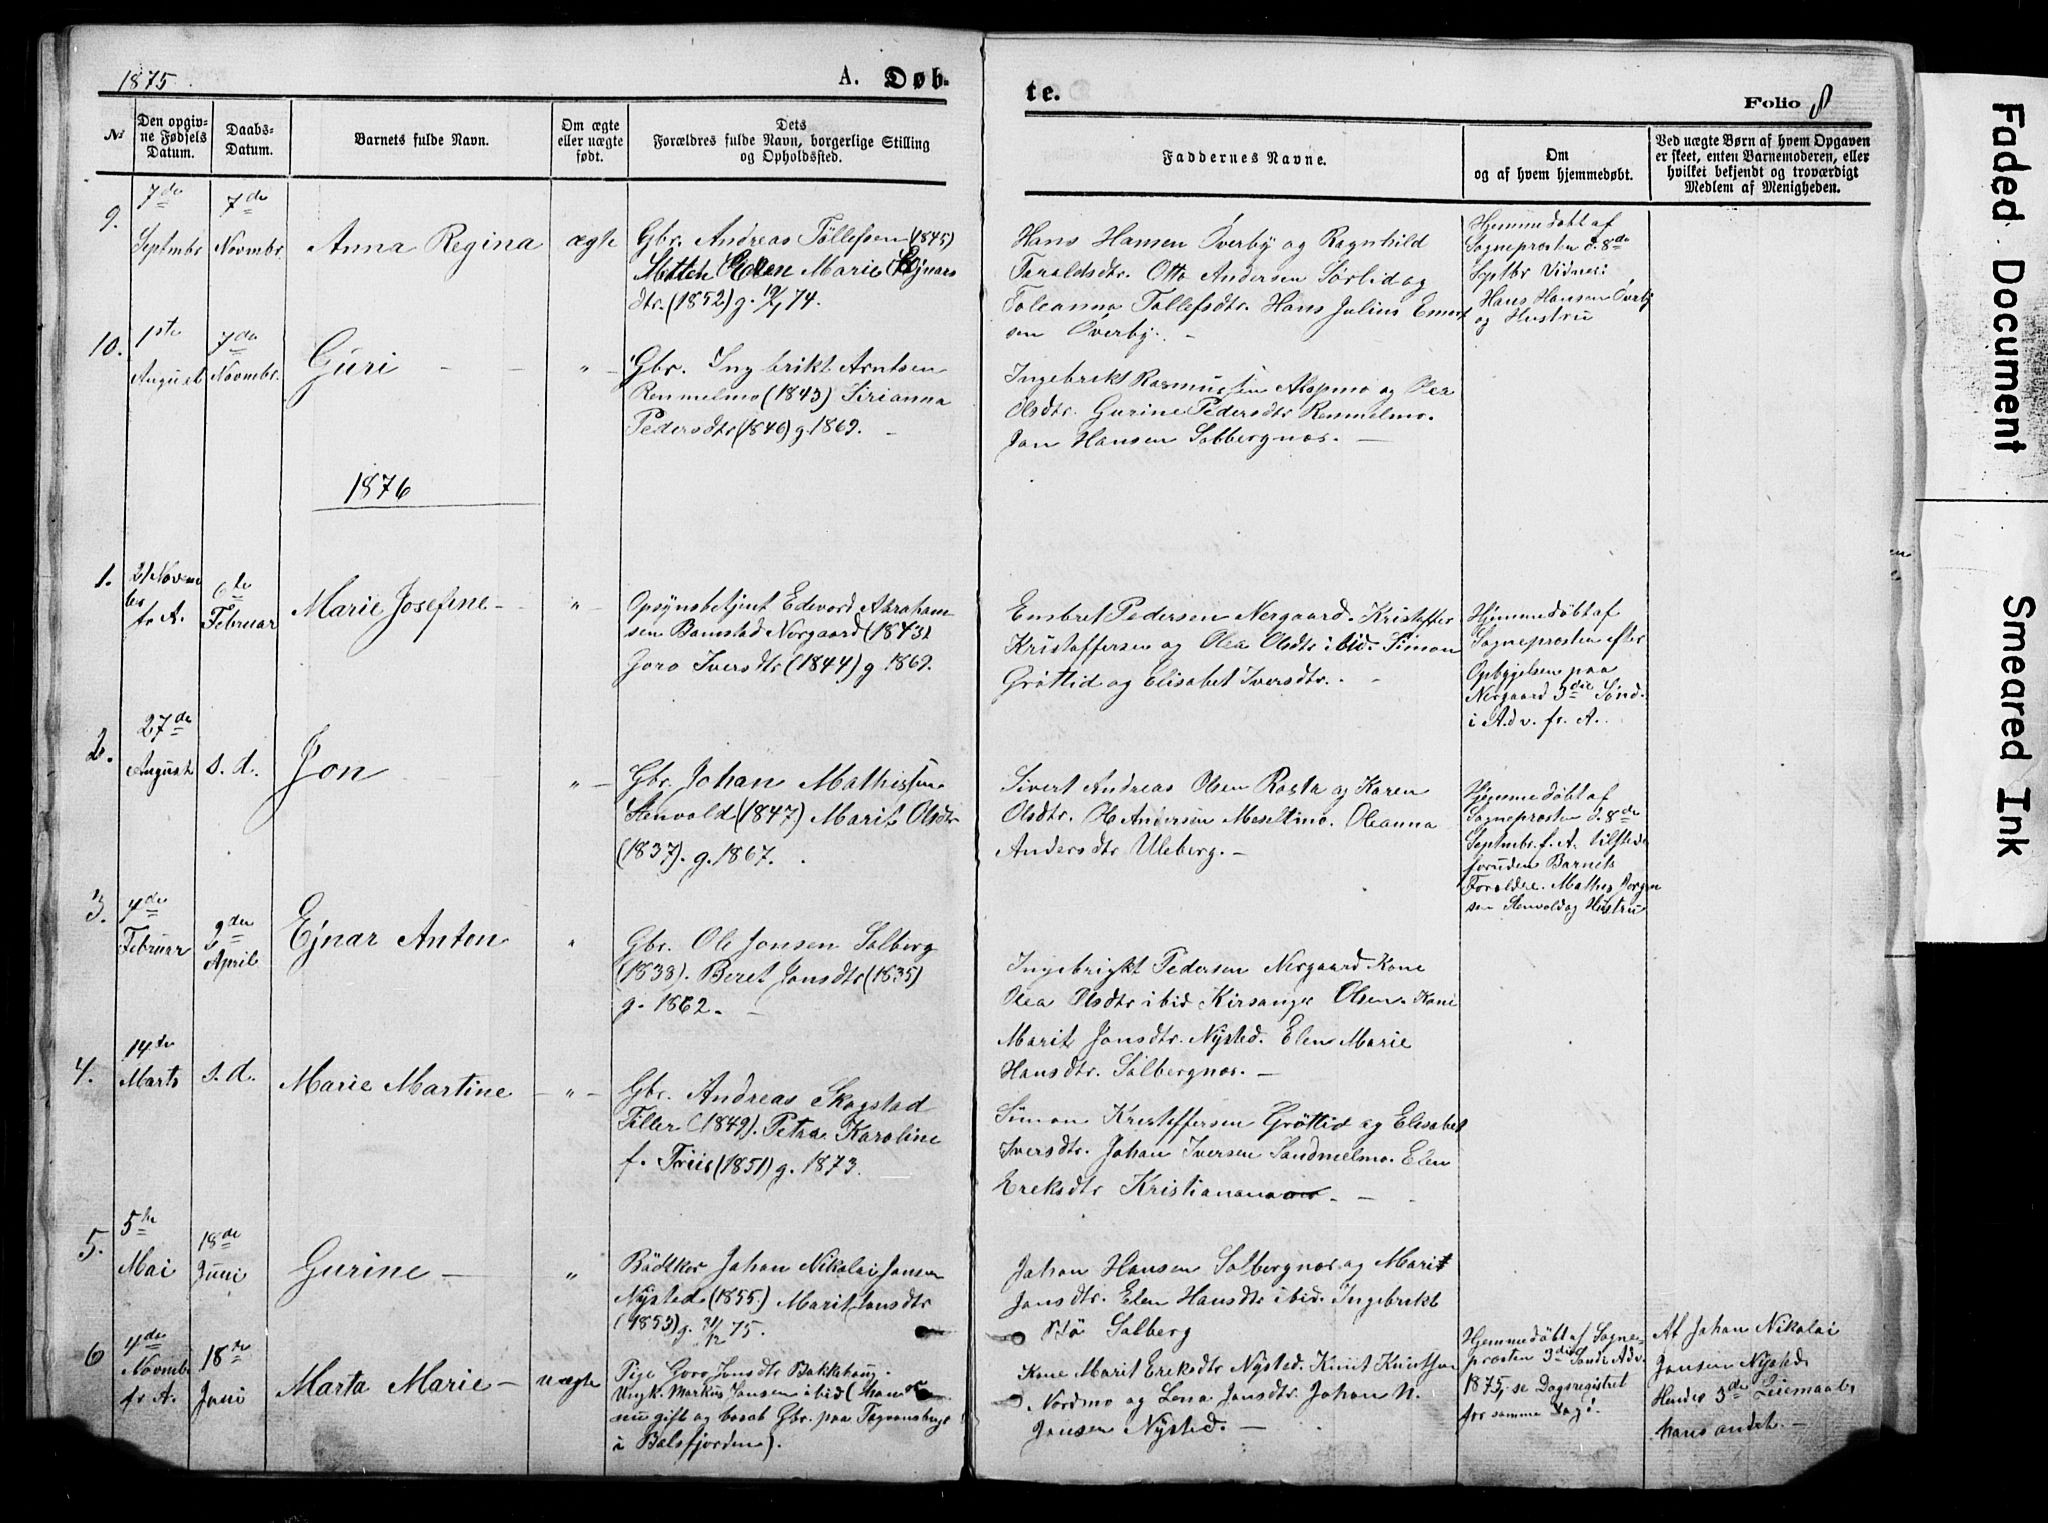 1875
A. Døb-
te.
Folio 8
№
Den opgiv-
ne Fødsels
Datum.
Daabs-
Datum.
Barnets fulde Navn.
Om ægte
eller uægte
født.
Dets
Forældres fulde Navn, borgerlige Stilling
og Opholdssted.
Faddernes Navne.
Om
og af hvem hjemmedøbt.
Ved uægte Børn af hvem Opgaven
er skeet, enten Barnemoderen, eller
hvilket bekjendt og troværdigt
Medlem af Menigheden.
9.
7de
Septmbr
7de
Novmbr.
Anna Regina
ægte
Gbr. Andreas Tøllefsen (1845)
Marie Ejnars
dtr. (1852) g. 74.
Hans Hansen Överby og Ragnhild
Taraldsdtr. Otto Andersen Sörlid og
Toleanna Tollefsdtr. Hans Julius Enert
sen Överby. -
Hjemmedöbt af
Sogneprosten d. 8de
Septbr Vidner:
Hans Hansen Överby
og Hustru
10.
1ste
August
7de
Novmbr.
Guri - -
" -
Gbr. Ingbrikt Arntsen
Rommelmo (1843) Sirianna
Pedersdtr (1846) g. 1869. -
Ingebrikt Rasmussen Alapmo og Olea
Olsdtr. Gurine Pedersdtr Rommelmo.
Jon Hansen Solbergnos. -
1876
1.
21 Novem
ber
f. A.
6te
Februar
Marie Josefine -
" -
Opsynsbetjent Edevard Abraham
sen Bamstad Nergaard (1843)
Goro Iversdtr (1844) g 1869.
Embret Pedersen Nergaard. Kristoffer
Kristoffersen og Olea Olsdtr ibid. Simon
Gröttid og Elisabet Iversdtr. -
Hjemmedöbt af
Sogneprosten efter
Opbyggelsen paa
Nergaard 3die Sönd.
i Adv. f. A.
2.
27de
August
s. d.
Jon - -
" -
Gbr. Johan Mathissen
Stenvold (1847) Marit Olsdtr
(1837). g. 1867. .
Sivert Andreas Olsen Rosta og Karen
Olsdtr. O Andersen Moseltmo. Oleanna
Andersdtr Uleberg. -
Hjemmedöbt af
Sogneprosten d. 8de
Septmbr. f. A. Tilstede
foruden Barnets
Forældre. Mathis Jorgen
sen Stenvold og Hustru
3.
4de
Februar
9de
April
Ejnar Anton
"
Gbr. Ole Jonsen Solberg
(1838). Beret Jonsdtr (1835)
g. 1862. -
Ingebrigkt Pedersen Nergaard Kone
Olea Olsdtr ibid Olsen. Kone
Marit Jonsdtr. Nysted. Elen Marie
Hansdtr. Solbergnos. -
4.
14de
Marts
s. d.
Marie Martine
- " -
Gbr. Andreas Skogstad
Tiller (1849). Petra Karoline
f. Friis (1851) g. 1873.
Simon Kristoffersen Gröttid og Elisabet
Iversdtr. Johan Iversen Sandmelmo. Elen
Ereksdtr - -
5.
5te
Mai
18de
Juni
Gurine -
"
Bödker Johan Nikolai Jonsen
Nysted (1855.) Marit Jonsdtr
(1853) g. 31/12 75.
Johan Hansen Solbergnos. og Marit
Jonsdtr. Elen Hansdtr ibid. Ingebrikt
Bö Solberg
6
4de
Novmbr
f. A.
18de
Juni
Marta Marie -
uægte
Pige Goro Jonsdtr Bakkehaug.
Ungk. Markus Jonsen ibid (han er
nu gift og bosat Gbr. paa
i Balsfjorden).
Kone Marit Ereksdtr Nysted. Knut Knutsen
Nordmo og Lena Jonsdtr. Johan N.
Jonsen Nysted. -
Hjemmedöbt af Sogne-
prosten 3die Sönd. i Adv.
1875, se Dagsregistret
for samme Dag!
Af Johan Nikolai
Jonsen Nysted.
Hendes 3de Leiemaal,
hans andet. -
Faded Document
Smeared Ink